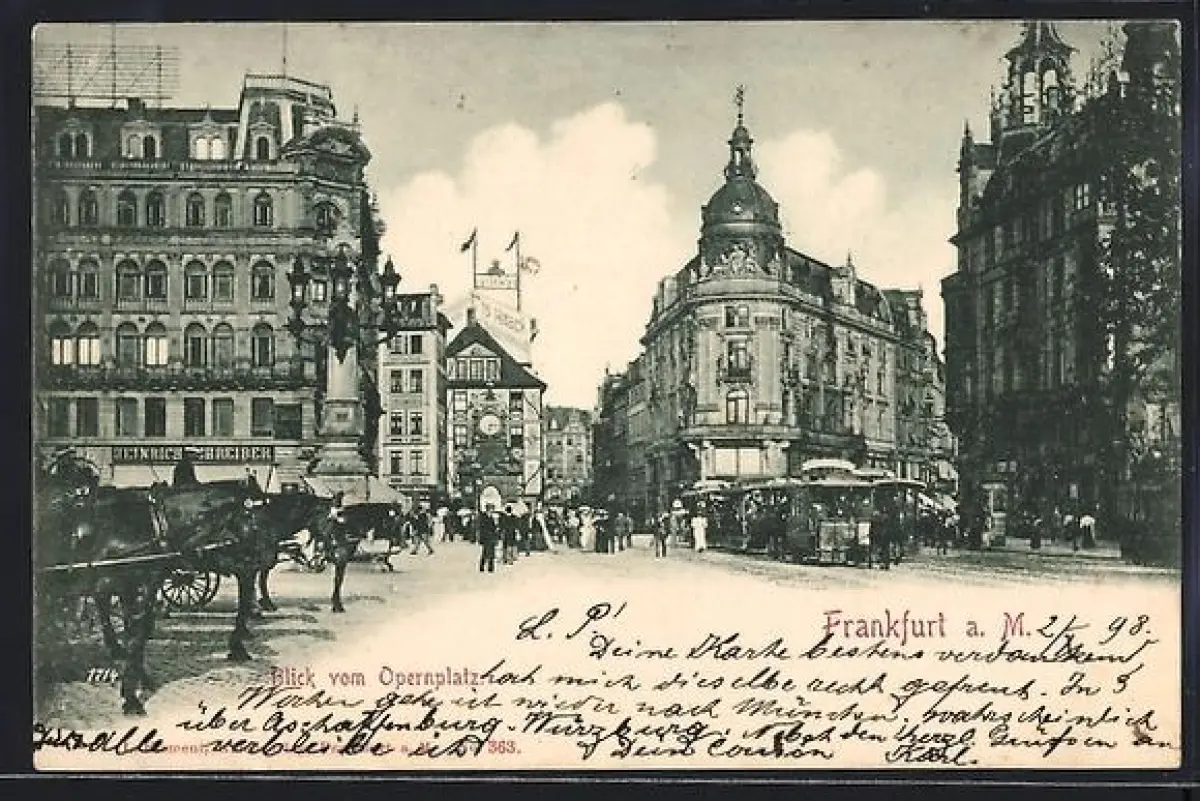 HEINRICH SCHREIBER
Frankfurt a. M. 2/X 98.
L. P!
Deine Karte bestens verdankend
hat mich dieselbe recht gefreut. In 3
Wochen gehe ich wieder nach München, wahrscheinlich
über Aschaffenburg. Würzburg. Nebst den herzl. Grüssen an
verbleibe ich Dein Cousin Karl.
Blick vom Opernplatz
1714
363.